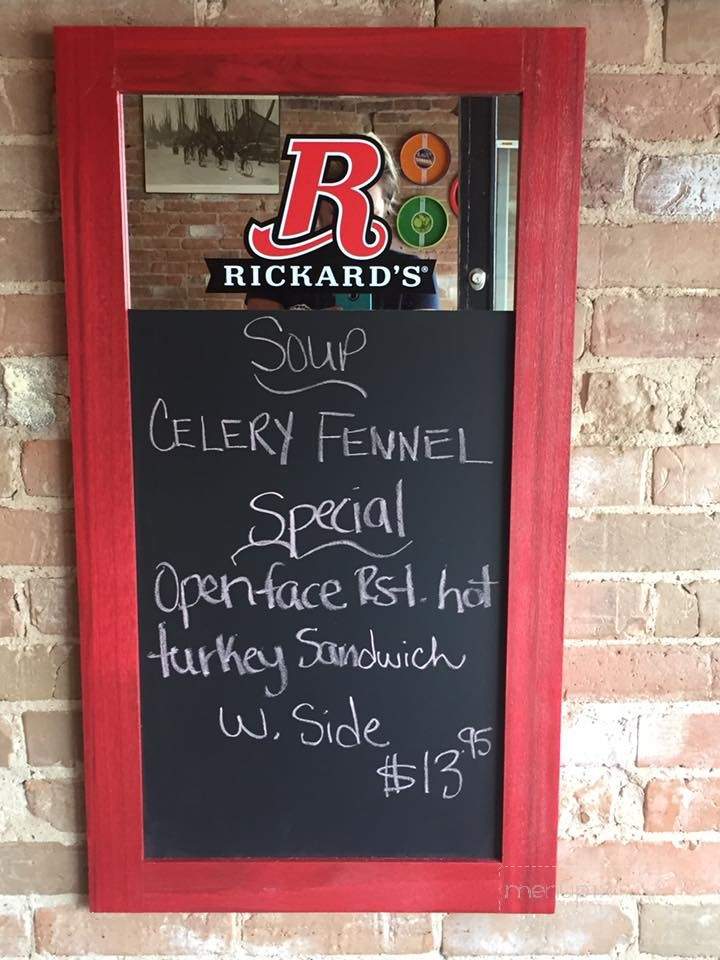 R
RICKARD'S®
SOUP
CELERY FENNEL
Special
Openface Rst. hot
turkey Sandwich
W. Side
$13.95